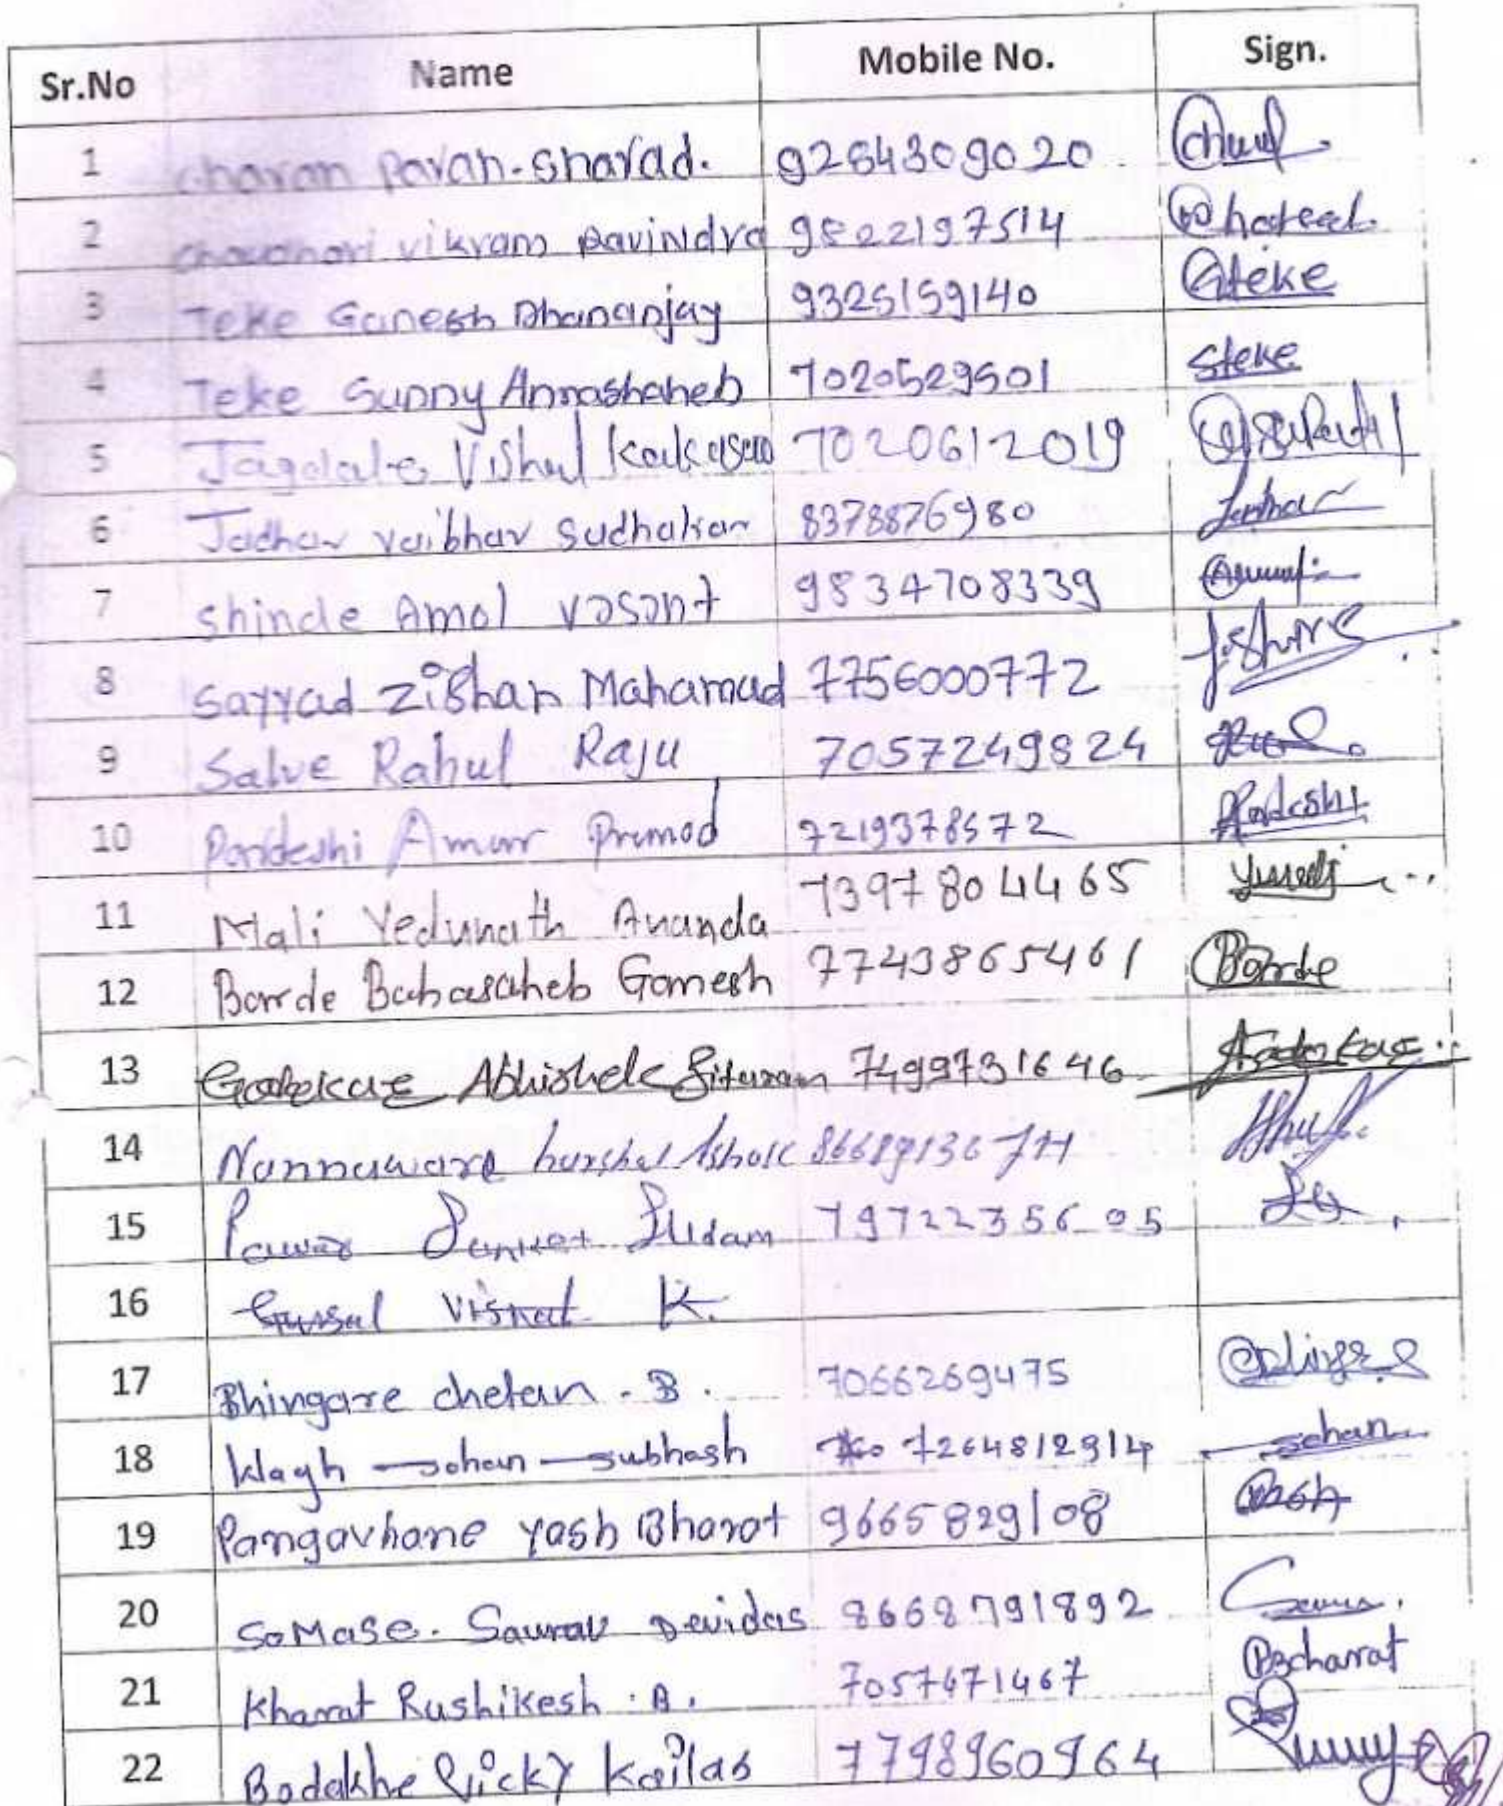 Sr.No Name Mobile No. Sign.
1 charan Pavan. Sharad. 9264309020
2 choudhari vikram Ravindra 9822197514
3 Teke Ganesh Dhananjay 9325159140 Gteke
4 Teke Sunny Annashaheb 7020529501 Steke
5 Jagdale Vishal Kakasao 7020612019
6 Jadhav vaibhav Sudhakar 8378876980 Jadhav
7 Shinde Amol Vasant 9834708339
8 Sayyad Zishan Mahamad 7756000772
9 Salve Rahul Raju 7057249824
10 Pardeshi Amar Pramod 7219378572 Pardeshi
11 Mali Yedunath Ananda 7397804465
12 Borde Babasaheb Ganesh 7743865461 Borde
13 Gadekar Abhishek Sitaram 7499731646
14 Nannaware harshal Ashok
15 Pawar Sanket Sudam 7972235605
16 Gunsal Vishal K.
17 Bhingare chetan . B . 7066269475
18 Wagh sohan subhash 7264812914 sohan
19 Pangavhane Yash Bharat 9665829108
20 SoMase. Saurav Devidas 8668791892
21 Kharat Rushikesh . B. 7057471467
22 Bodakhe Vicky Kailas 7798960964